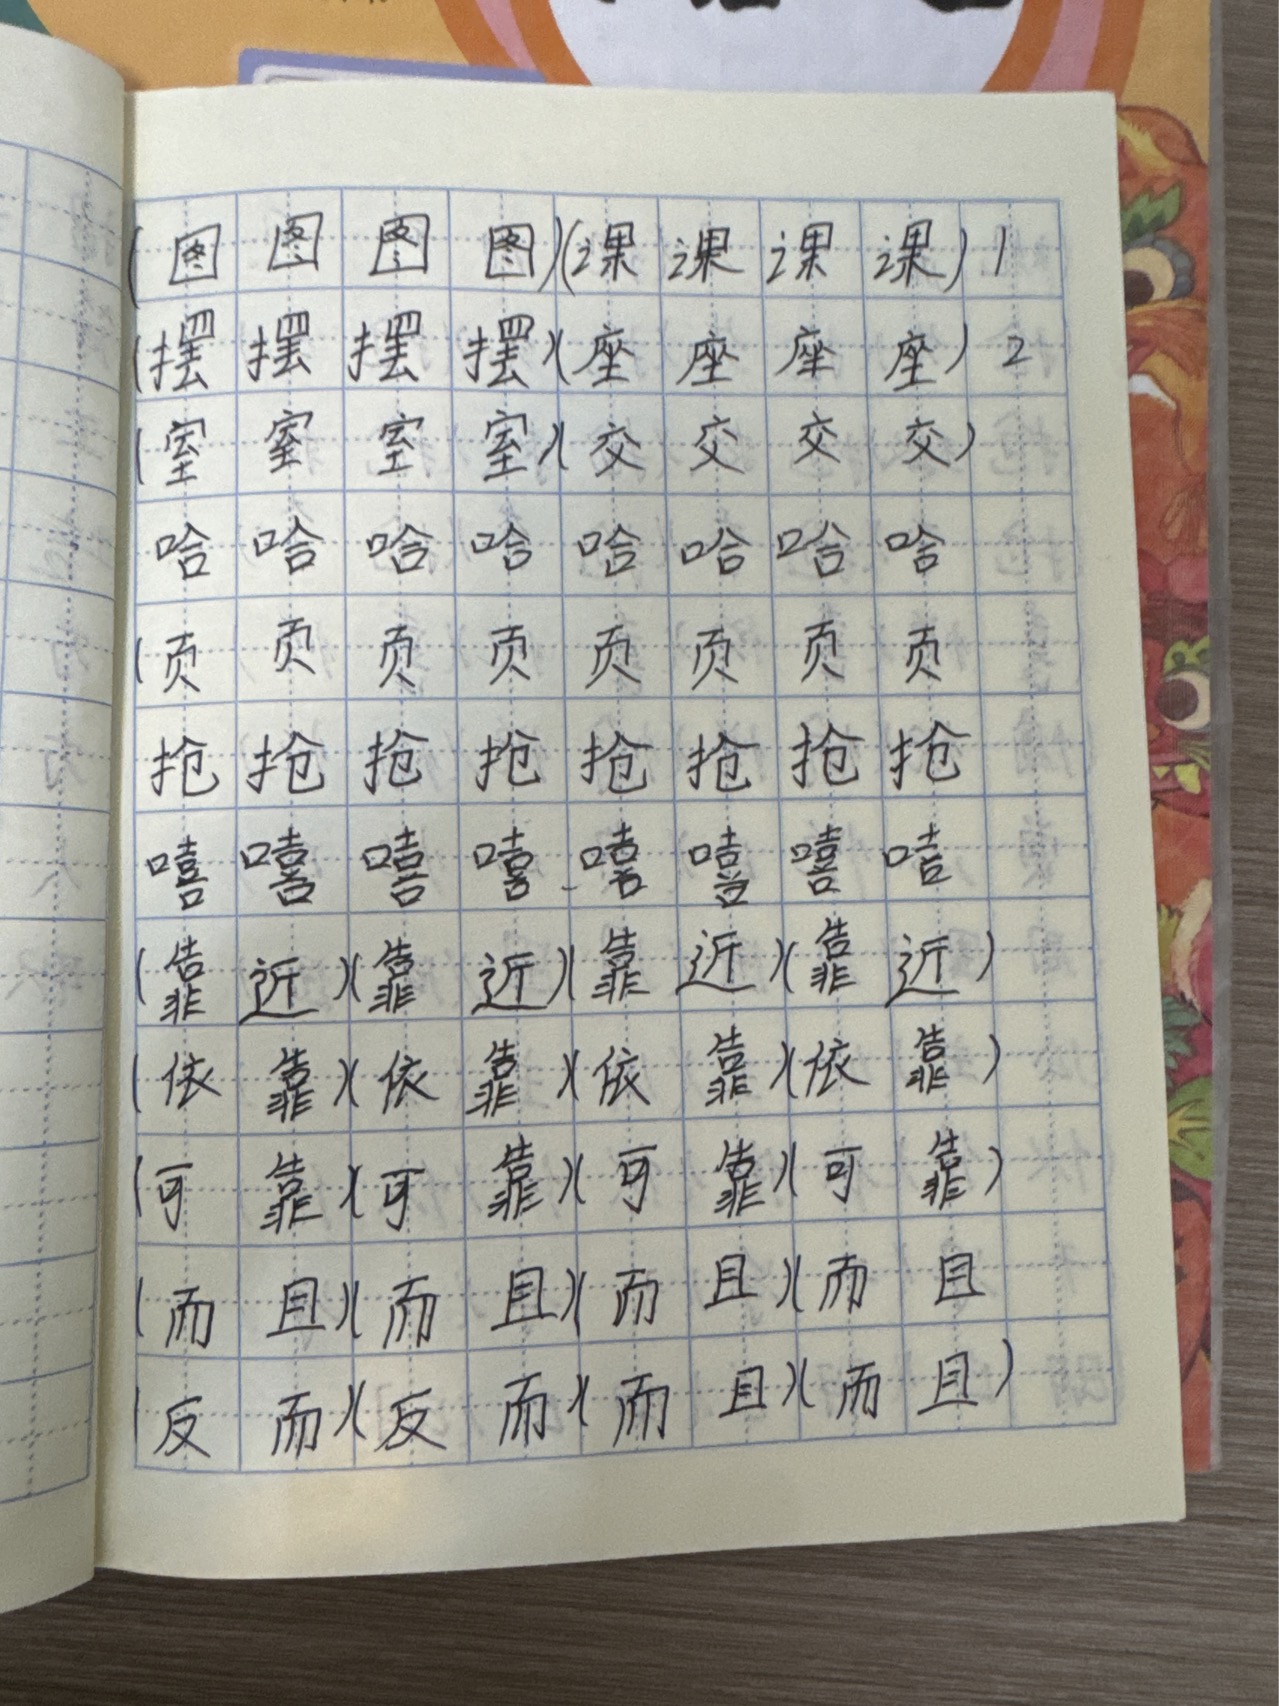 (图图图图)(课课课课)1
(摆摆摆摆)(座座座座)2
(室室室室)(交交交交)
哈哈哈哈哈哈哈哈
(页页页页页页页页
抢抢抢抢抢抢抢抢
嘻嘻嘻嘻嘻嘻嘻
(靠近)(靠近)(靠近)(靠近)
(依靠)(依靠)(依靠)(依靠)
(可靠)(可靠)(可靠)(可靠)
(而且)(而且)(而且)(而且
(反而)(反而)(而且)(而且)